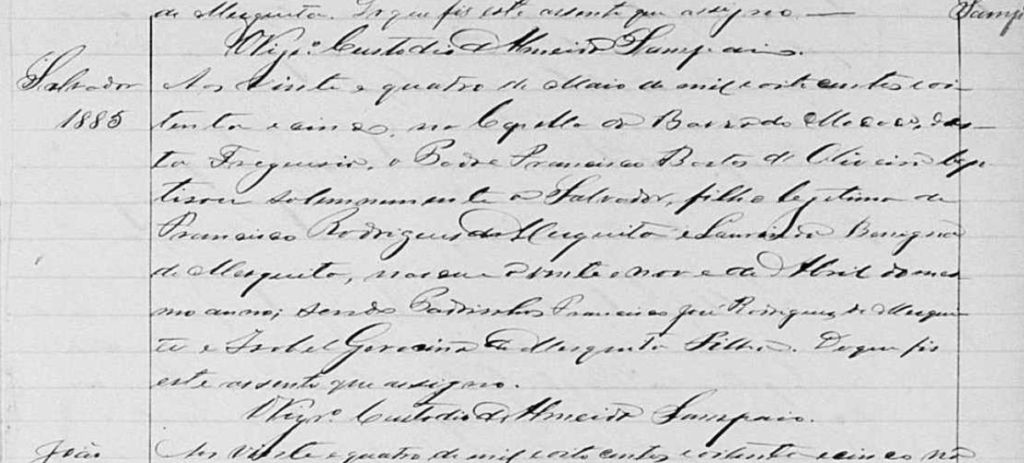 de Mesquita. Do que fis este assento que assigno.
Samp
O Vigrº. Custodio de Almeida Sampaio.
Salvador
1885
Aos vinte e quatro de Maio de mil oito centos e oi-
tenta e cinco, na Capella da Barra do Macaco, des-
ta Freguesia, o Padre Francisco Bastos de Oliveira bap-
tisou solemnemente a Salvador, filho legitimo de
Francisco Rodrigues de Mesquita e Laurinda Benigna
de Mesquita, nasceu a vinte e nove de Abril do mes-
mo anno; sendo Padrinhos Francisco José Rodrigues de Mesqui-
ta e Isabel de Mesquita Filha. Do que fis
este assento que assigno.
O Vigrº. Custodio de Almeida Sampaio.
João
Aos vinte e quatro de mil oito centos e oitenta e cinco na